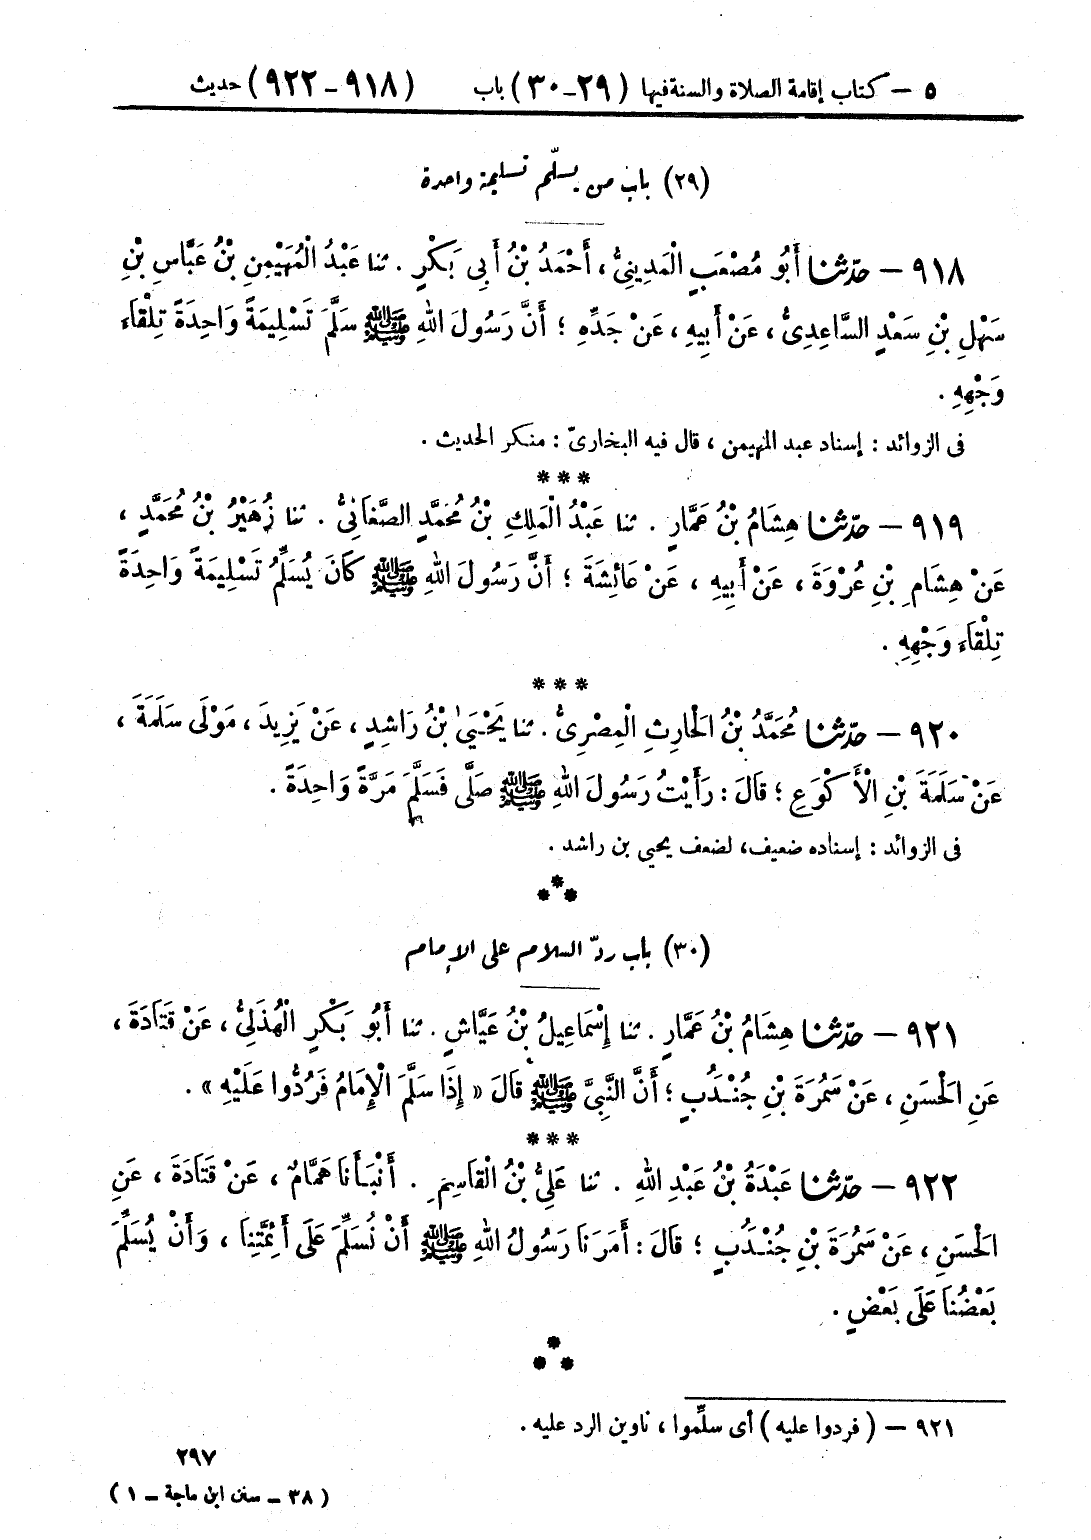 ٥ – كتاب إقامة الصلاة والسنة فيها (٢٩-٣٠) باب (٩١٨-٩٢٢) حديث
(٢٩) باب من يسلّم تسليمة واحدة
٩١٨ – حدّثنا أَبُو مُصْعَبٍ الْمَدِينِيُّ، أَحْمَدُ بْنُ أَبِي بَكْرٍ . ثنا عَبْدُ الْمُهَيْمِنِ بْنُ عَبَّاسِ بْنِ
سَهْلِ بْنِ سَعْدٍ السَّاعِدِىُّ ، عَنْ أَبِيهِ ، عَنْ جَدِّهِ ؛ أَنَّ رَسُولَ اللهِ ﷺ سَلَّمَ تَسْلِيمَةً وَاحِدَةً تِلْقَاءَ
وَجْهِهِ .
فى الزوائد : إسناد عبد المهيمن ، قال فيه البخارىّ : منكر الحديث .
***
٩١٩ – حدّثنا هِشَامُ بْنُ عَمَّارٍ . ثنا عَبْدُ الْمَلِكِ بْنُ مُحَمَّدٍ الصَّنْعَانِىُّ . ثنا زُهَيْرُ بْنُ مُحَمَّدٍ ،
عَنْ هِشَامِ بْنِ عُرْوَةَ ، عَنْ أَبِيهِ ، عَنْ عَائِشَةَ ؛ أَنَّ رَسُولَ اللهِ ﷺ كَانَ يُسَلِّمُ تَسْلِيمَةً وَاحِدَةً
تِلْقَاءَ وَجْهِهِ .
***
٩٢٠ – حدّثنا مُحَمَّدُ بْنُ الْحَارِثِ الْمِصْرِىُّ . ثنا يَحْيَىٰ بْنُ رَاشِدٍ ، عَنْ يَزِيدَ ، مَوْلَى سَلَمَةَ ،
عَنْ سَلَمَةَ بْنِ الْأَكْوَعِ ؛ قَالَ : رَأَيْتُ رَسُولَ اللهِ ﷺ صَلَّى فَسَلَّمَ مَرَّةً وَاحِدَةً .
فى الزوائد : إسناده ضعيف، لضعف يحيى بن راشد .
***
(٣٠) باب ردّ السلام على الإمام
٩٢١ – حدّثنا هِشَامُ بْنُ عَمَّارٍ . ثنا إِسْمَاعِيلُ بْنُ عَيَّاشٍ . ثنا أَبُو بَكْرٍ الْهُذَلِىُّ ، عَنْ قَتَادَةَ ،
عَنِ الْحَسَنِ ، عَنْ سَمُرَةَ بْنِ جُنْدَُبٍ ؛ أَنَّ النَّبِىَّ ﷺ قَالَ « إِذَا سَلَّمَ الْإِمَامُ فَرُدُّوا عَلَيْهِ » .
***
٩٢٢ – حدّثنا عَبْدَةُ بْنُ عَبْدِ اللهِ . ثنا عَلِىُّ بْنُ الْقَاسِمِ . أَنْبَأَنَا هَمَّامٌ ، عَنْ قَتَادَةَ ، عَنِ
الْحَسَنِ ، عَنْ سَمُرَةَ بْنِ جُنْدَُبٍ ؛ قَالَ : أَمَرَنَا رَسُولُ اللهِ ﷺ أَنْ نُسَلِّمَ عَلَى أَئِمَّتِنَا ، وَأَنْ يُسَلِّمَ
بَعْضُنَا عَلَى بَعْضٍ .
***
٩٢١ – ( فردوا عليه ) أى سلِّموا ، ناوين الرد عليه .
٢٩٧
( ٣٨ – سنن ابن ماجة – ١ )